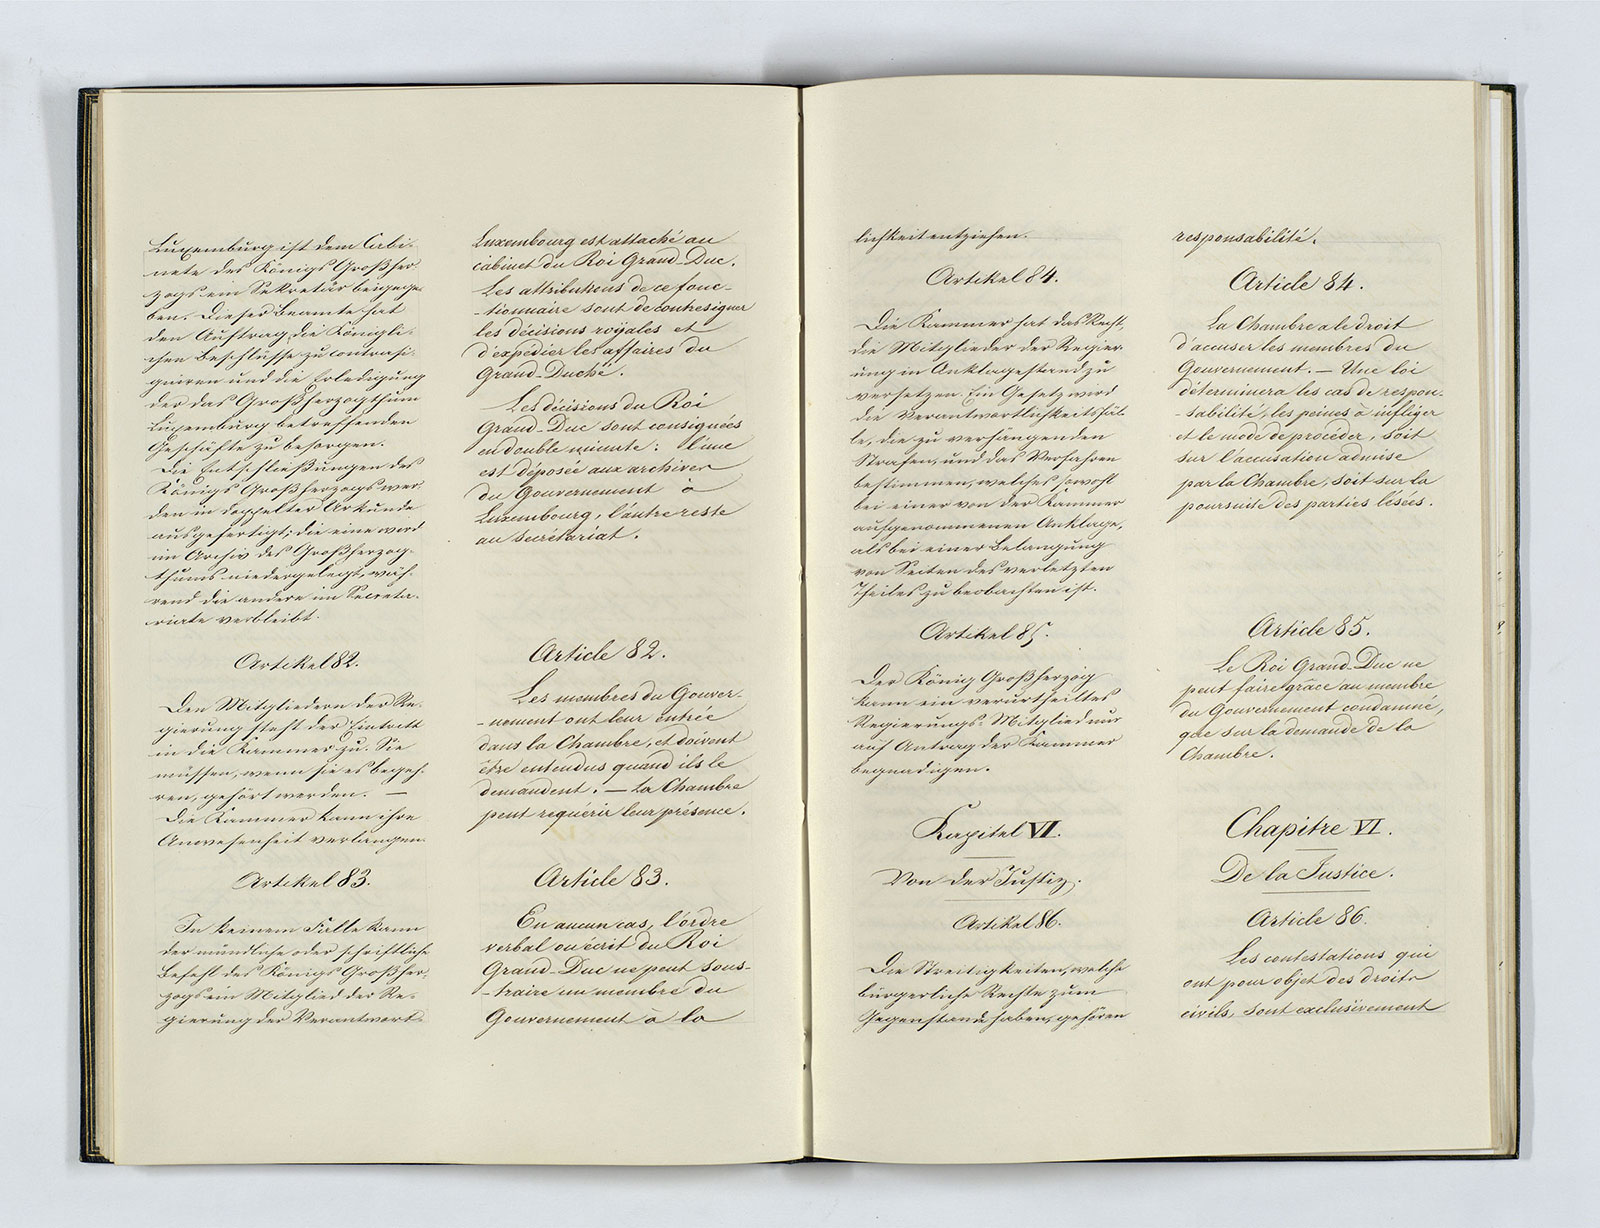 Luxemburg ist dem Cabi-
nete des Königs Großher
zogs ein Sekretär beigege-
ben. Dieser Beamte hat
den Auftrag, die Königli-
chen Beschlüsse zu contrasi-
gniren und die Erledigung
der das Großherzogthum
Luxemburg betreffenden
Geschäfte zu besorgen.
Die Entschließungen des
Königs Großherzogs wer-
den in doppelter Urkunde
ausgefertigt; die eine wird
im Archiv des Großherzog-
thums niedergelegt, wäh-
rend die andere im Secreta-
riate verbleibt.
Artikel 82.
Den Mitgliedern der Re-
gierung steht der Eintritt
in die Kammer zu. Sie
müssen, wenn sie es begeh-
ren, gehört werden. —
Die Kammer kann ihre
Anwesenheit verlangen.
Artikel 83.
In keinem Falle kann
der mündliche oder schriftliche
Befehl des Königs Großher-
zogs ein Mitglied der Re-
gierung der Verantwort-
Luxembourg est attaché au
cabinet du Roi Grand-Duc.
Les attributions de ce fonc-
-tionnaire sont de contresigner
les décisions royales et
d'expédier les affaires du
Grand-Duché.
Les décisions du Roi
Grand-Duc sont consignées
en double minute: l'une
est déposée aux archives
du Gouvernement à
Luxembourg, l'autre reste
au secrétariat.
Article 82.
Les membres du Gouver-
-nement ont leur entrée
dans la Chambre, et doivent
être entendus quand ils le
demandent. — La Chambre
peut requérir leur présence.
Article 83.
En aucun cas, l'ordre
verbal ou écrit du Roi
Grand-Duc ne peut sous-
-traire un membre du
Gouvernement à la
lichkeit entziehen.
Artikel 84.
Die Kammer hat das Recht,
die Mitglieder der Regier-
ung in Anklagestand zu
versetzen. Ein Gesetz wird
die Verantwortlichkeitsfäl-
le, die zu verhängenden
Strafen, und das Verfahren
bestimmen, welches sowohl
bei einer von der Kammer
aufgenommenen Anklage,
als bei einer Belangung
von Seiten des verletzten
Theiles zu beobachten ist.
Artikel 85.
Der König Großherzog
kann ein verurtheiltes
Regierungs-Mitglied nur
auf Antrag der Kammer
begnadigen.
Kapitel VI.
Von der Justiz.
Artikel 86.
Die Streitigkeiten, welche
bürgerliche Rechte zum
Gegenstande haben, gehören
responsabilité.
Article 84.
La Chambre a le droit
d'accuser les membres du
Gouvernement. — Une loi
déterminera les cas de respon-
-sabilité, les peines à infliger
et le mode de procéder, soit
sur l'accusation admise
par la Chambre, soit sur la
poursuite des parties lésées.
Article 85.
Le Roi Grand-Duc ne
peut faire grâce au membre
du Gouvernement condamné,
que sur la demande de la
Chambre.
Chapitre VI.
De la Justice.
Article 86.
Les contestations qui
ont pour objet des droits
civils, sont exclusivement